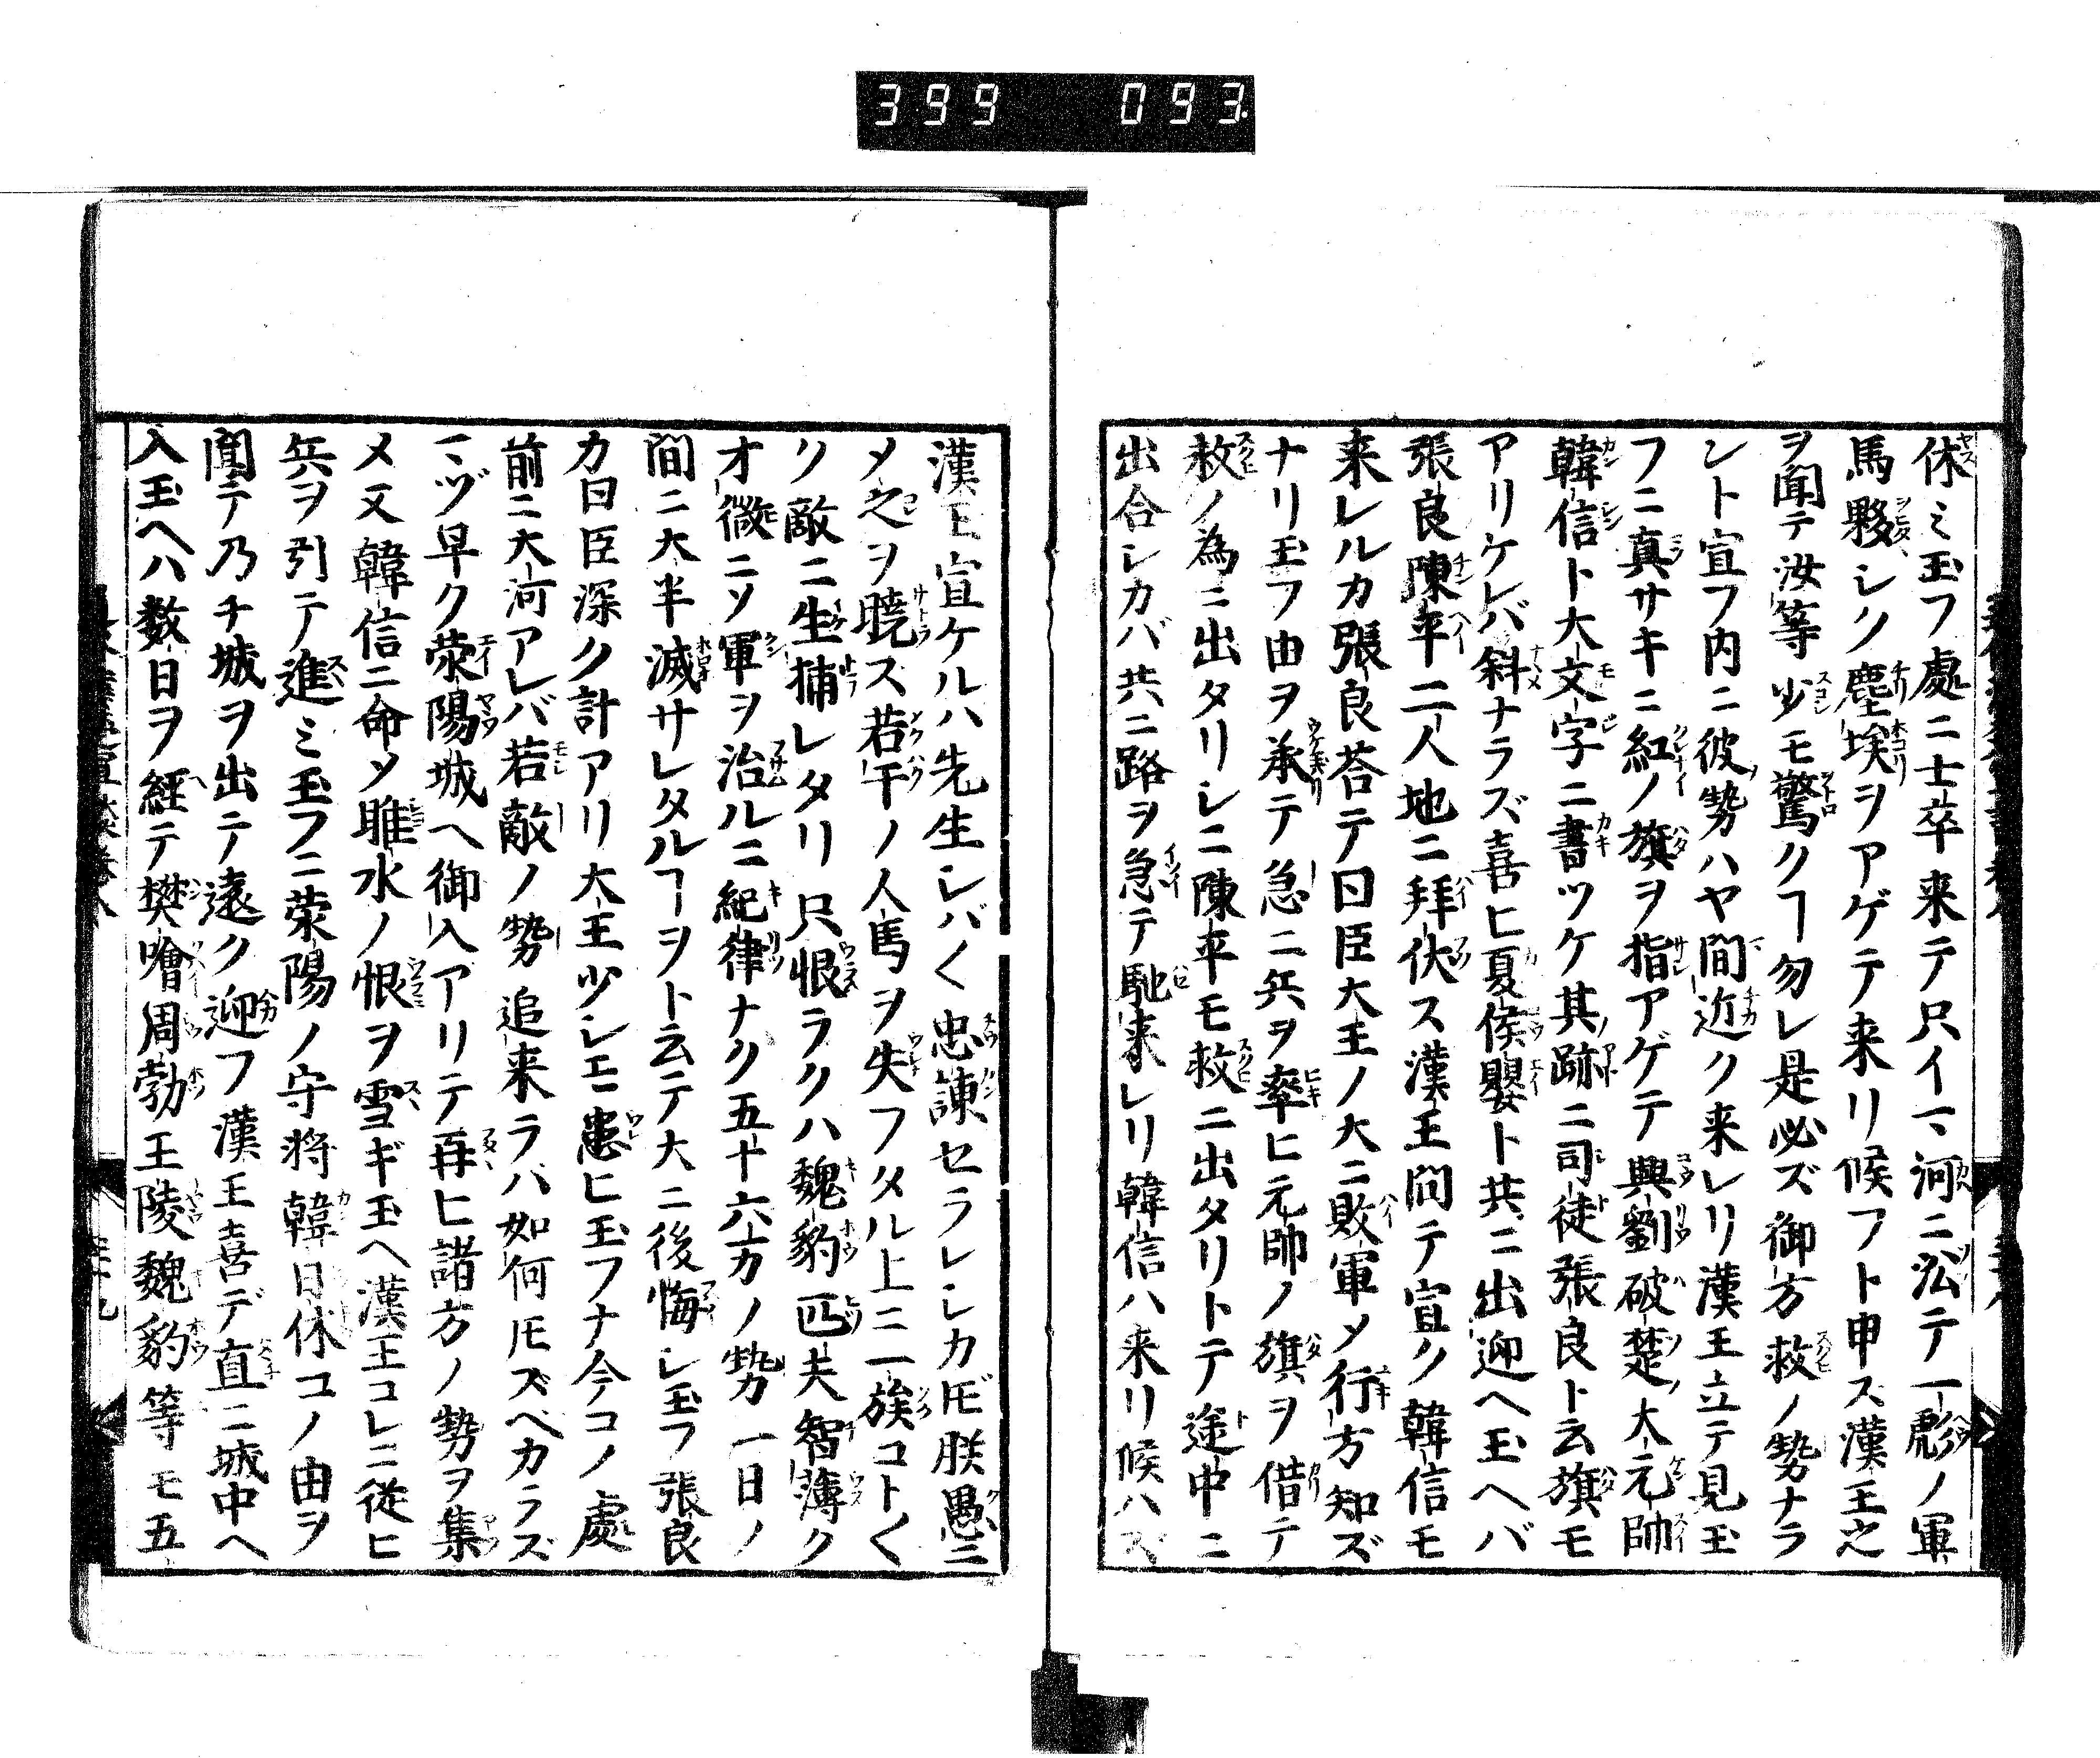 399 093
休ミ玉フ處ニ士卒来テ只イマ河ニ㳂テ一彪ノ軍
馬夥シク塵埃ヲアゲテ来リ候フト申ス漢王之
ヲ聞テ汝等少モ驚クヿ勿レ是必ズ御方救ノ勢ナラ
ント宣フ内ニ彼勢ハヤ間近ク来レリ漢王立テ見玉
フニ真サキニ紅ノ旗ヲ指アゲテ興劉破楚大元帥
韓信ト大文字ニ書ツケ其跡ニ司徒張良ト云旗モ
アリケレバ斜ナラズ喜ヒ夏侯嬰ト共ニ出迎ヘ玉ヘバ
張良陳平二人地ニ拜伏ス漢王問テ宣ク韓信モ
来レルカ張良荅テ曰臣大王ノ大ニ敗軍メ行方知ズ
ナリ玉フ由ヲ承テ急ニ兵ヲ率ヒ元帥ノ旗ヲ借テ
救ノ為ニ出タリシニ陳平モ救ニ出タリトテ途中ニ
出合シカバ共ニ路ヲ急テ馳来レリ韓信ハ来リ候ハズ
漢王宣ケルハ先生シバ〱忠諌セラレシカ𪜈朕愚ニ
メ之ヲ暁ス若干ノ人馬ヲ失フタル上ニ一族コト〱
ク敵ニ生捕レタリ只恨ラクハ魏豹匹夫智薄ク
才微ニメ軍ヲ治ルニ紀律ナク五十六万ノ勢一日ノ
間ニ大半滅サレタルヿヲト云テ大ニ後悔シ玉フ張良
カ曰臣深ク計アリ大王少シモ患ヒ玉フナ今コノ處
前ニ大河アレバ若敵ノ勢追来ラバ如何𪜈ズベカラズ
マヅ早ク荥陽城ヘ御入アリテ再ヒ諸方ノ勢ヲ集
メ又韓信ニ命メ睢水ノ恨ヲ雪ギ玉ヘ漢王コレニ従ヒ
兵ヲ引テ進ミ玉フニ荥陽ノ守将韓日休コノ由ヲ
聞テ乃チ城ヲ出テ遠ク迎フ漢王喜デ直ニ城中ヘ
入玉ヘハ数日ヲ經テ樊噲周勃王陵魏豹等モ五